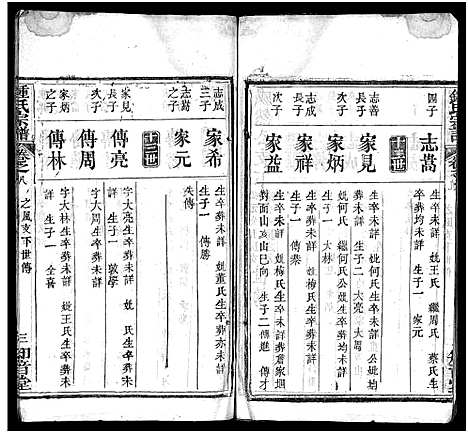 團子
志嵩
生卒葬均未詳 娶王氏 繼周氏 蔡氏生
卒葬均未詳 生子一 家元
十二世
志善
長子
家見
葬未詳 生子二 大亮 大周
次子
家炳
娶何氏 繼何氏公娶生卒葬均未詳
生子一 大林
志成
長子
家祥
生卒葬未詳 娶梅氏生卒葬未詳
生子一 傳榮
次子
家益
對面山亥山巳向 生子二 傳進 傳才
志成
三子
家希
生卒葬未詳 娶董氏生卒葬亦未詳
生子一 傳勝
志嵩
之子
家元
失傳
十三世
家見
長子
傳亮
字大亮生卒葬未詳 娶王氏生卒葬未詳
生子一 敦學
次子
傳周
字大周生卒葬未詳
家炳
之子
傳林
字大林生卒葬未詳 娶梅氏生卒葬未詳
生子一 全喜
鍾氏宗譜
卷之八
之風支下世傳
三
知音堂